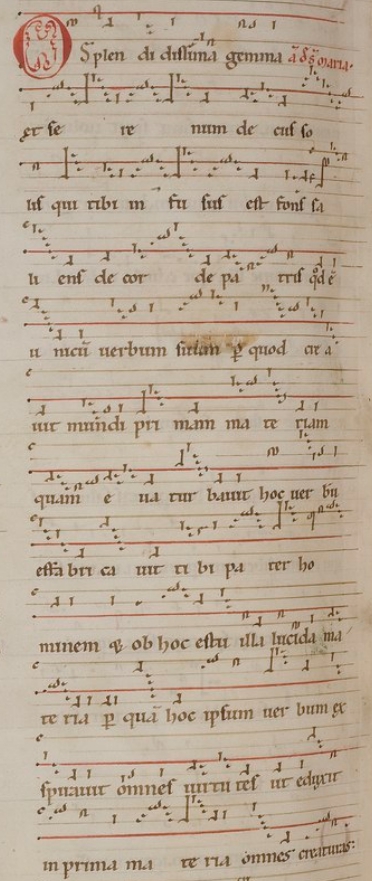 O Splen di dissima gemma ā d̄ s̄ maria.
et se re num de cus so
lis qui tibi in fu sus est fons sa
li ens de cor de pa tris qd̄ ē
u nicū uerbum suum ꝑ quod cre a
uit mundi pri mam ma te riam
quam e ua tur bauit hoc uer bū
effa bri ca uit ti bi pa ter ho
minem & ob hoc es tu illa lucida ma
te ria ꝑ quā hoc ipsum uer bum ex
spirauit omnes uirtu tes ut eduxit
in prima ma te ria omnes creaturas.